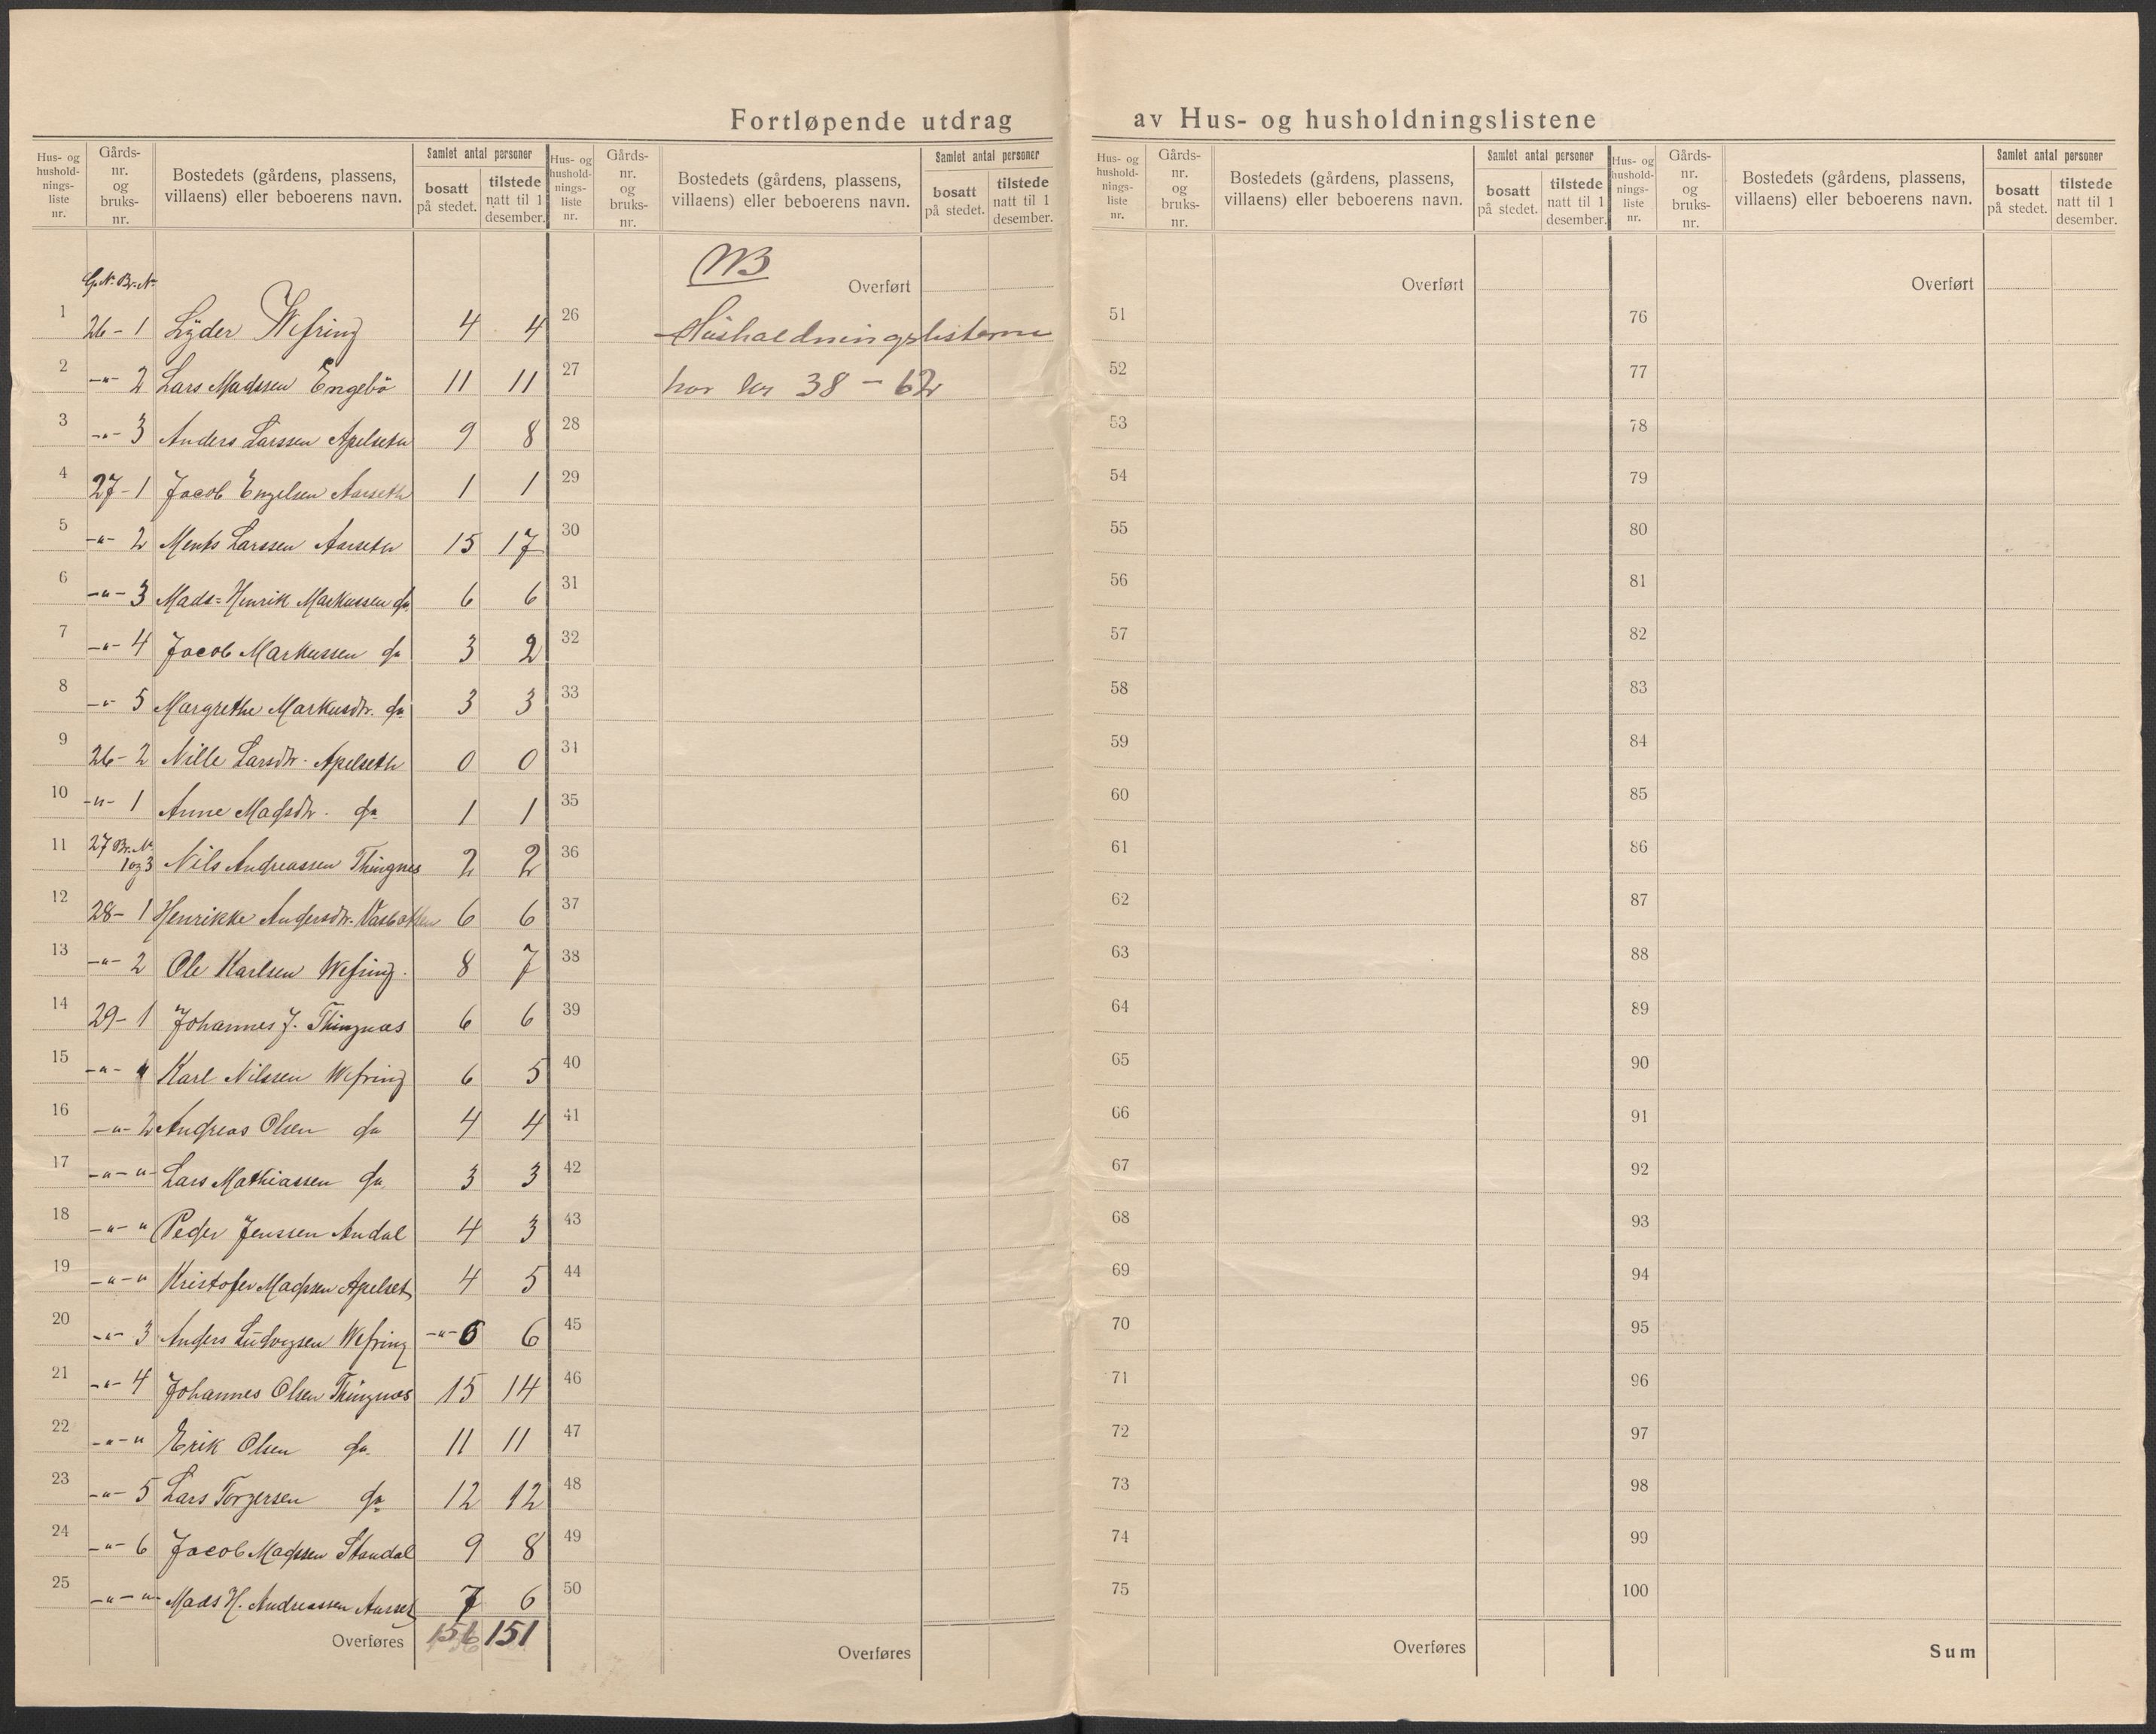 Fortløpende utdrag av Hus- og husholdningslistene
Hus- og hushold- nings- liste nr. Gårds- nr. og bruks- nr. Bostedets (gårdens, plassens, villaens) eller beboerens navn. Samlet antal personer bosatt på stedet. tilstede natt til 1 desember.
Hus- og hushold- nings- liste nr. Gårds- nr. og bruks- nr. Bostedets (gårdens, plassens, villaens) eller beboerens navn. Samlet antal personer bosatt på stedet. tilstede natt til 1 desember.
Hus- og hushold- nings- liste nr. Gårds- nr. og bruks- nr. Bostedets (gårdens, plassens, villaens) eller beboerens navn. Samlet antal personer bosatt på stedet. tilstede natt til 1 desember.
Hus- og hushold- nings- liste nr. Gårds- nr. og bruks- nr. Bostedets (gårdens, plassens, villaens) eller beboerens navn. Samlet antal personer bosatt på stedet. tilstede natt til 1 desember.
G.N. Br.N.
1 26-1 Lÿder Wefring 4 4
2 -"- 2 Lars Madssen Engebö 11 11
3 -"- 3 Anders Larssen Apelseth 9 8
4 27-1 Jacob Engelsen Aarseth 1 1
5 -"- 2 Ments Larssen Aarseth 15 17
6 -"- 3 Mads=Henrik Markussen do 6 6
7 -"- 4 Jacob Markussen do 3 2
8 -"- 5 Margrethe Markusdtr. do 3 3
9 26-2 Nille Larsdtr. Apelseth 0 0
10 -"- 1 Anne Madsdtr. do 1 1
11 27 Br.N. 1 og 3 Nils Andreassen Thingnes 2 2
12 28-1 Henrikke Andersdtr. Vasbotten 6 6
13 -"- 2 Ole Karlsen Wefring. 8 7
14 29-1 Johannes J. Thingnæs 6 6
15 -"- " Karl Nilssen Wefring 6 5
16 -"- 2 Andreas Olsen do 4 4
17 -"- " Lars Mathiassen do 3 3
18 -"- " Peder Jenssen Andal 4 3
19 -"- " Kristofer Madssen Apelset 4 5
20 -"- 3 Anders Ludvigsen Wefring -"- 6 6
21 -"- 4 Johannes Olsen Thingnæs 15 14
22 -"- " Erik Olsen do. 11 11
23 -"- 5 Lars Torgersen do 12 12
24 -"- 6 Jacob Madssen Standal 9 8
25 -"- " Mads H. Andreassen Aarset 7 6
Overføres 156 151
NB
Overført
26 Husholdningslisterne
27 har 38 - 62
28
29
30
31
32
33
34
35
36
37
38
39
40
41
42
43
44
45
46
47
48
49
50
Overføres
Overført
51
52
53
54
55
56
57
58
59
60
61
62
63
64
65
66
67
68
69
70
71
72
73
74
75
Overføres
Overført
76
77
78
79
80
81
82
83
84
85
86
87
88
89
90
91
92
93
94
95
96
97
98
99
100
Sum